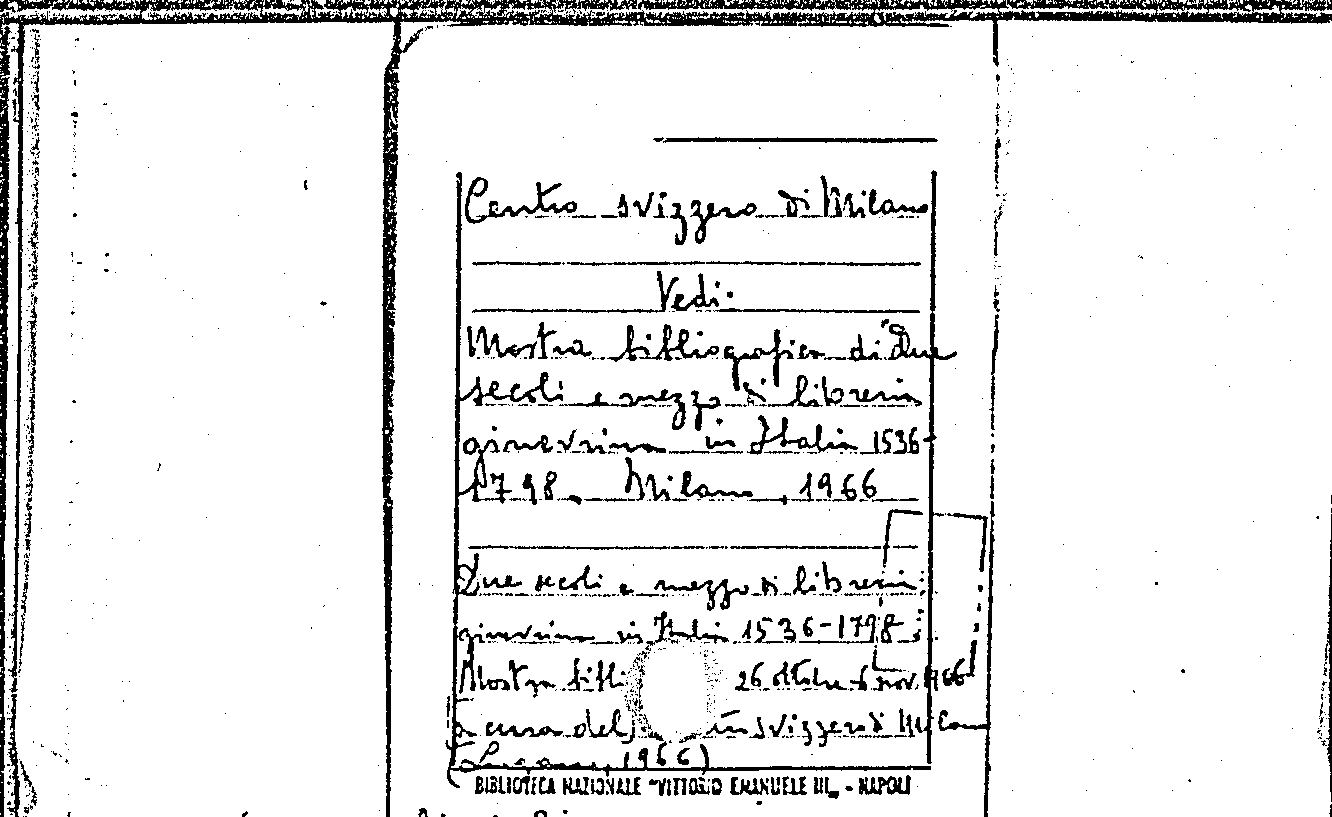 Centro svizzero di Milano
Vedi:
Mostra bibliografica di "Due
secoli e mezzo di libreria
ginevrina in Italia 1536-
1798. Milano, 1966
Due secoli e mezzo di libreria
ginevrina in Italia 1536-1798:
Mostra bibli 26 ottobre-6 nov. 1966
a cura del svizzero di Milano
(Lugano, 1966)
BIBLIOTECA NAZIONALE "VITTORIO EMANUELE III„ - NAPOLI